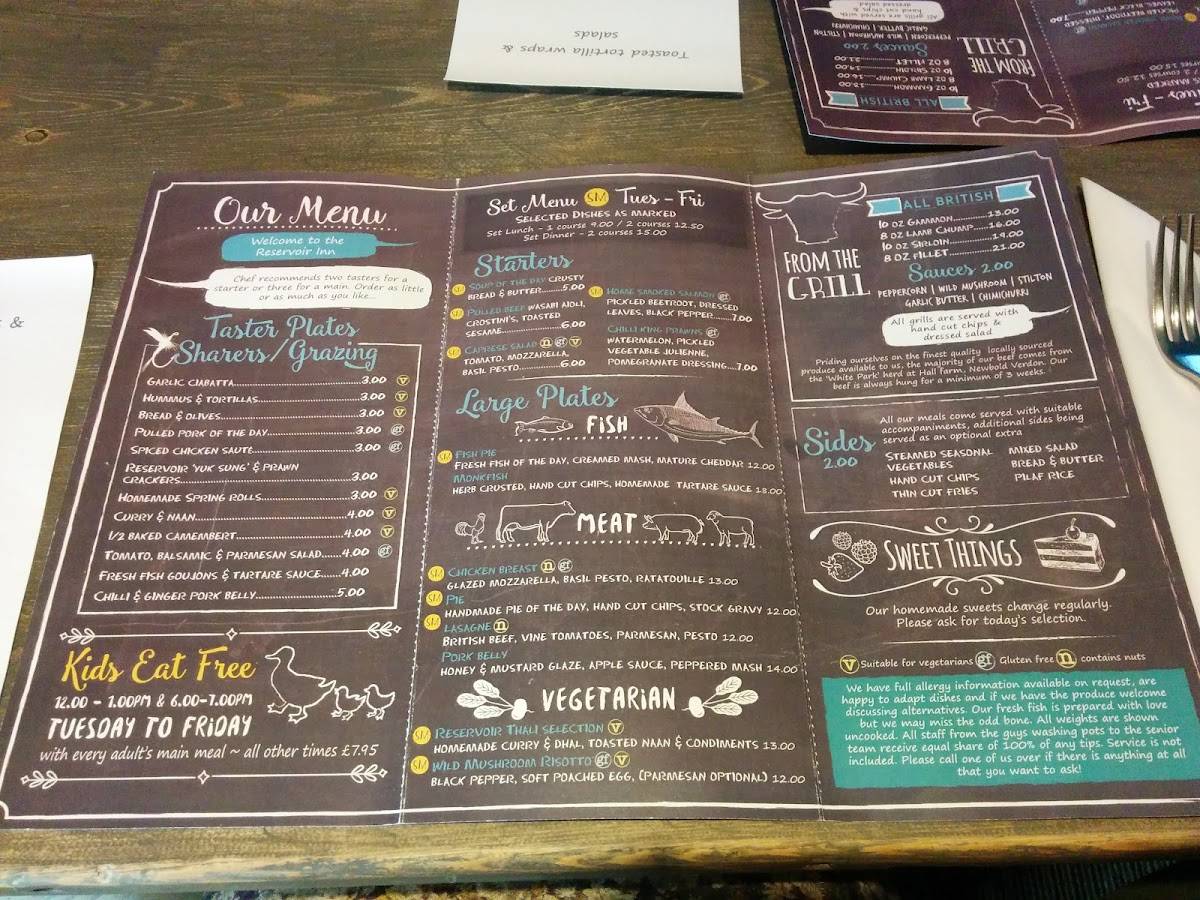 Toasted tortilla wraps &
salads
Tues - Fri
s &
Our Menu
Welcome to the
Reservoir Inn
Chef recommends two tasters for a
starter or three for a main. Order as little
or as much as you like...
Taster Plates
Sharers/Grazing
Garlic Ciabatta 3.00 v
Hummus & Tortillas 3.00 v
Bread & Olives 3.00 v
Pulled Pork of the Day 3.00 gf
Spiced Chicken Saute 3.00 gf
Reservoir 'Yuk Sung' & Prawn
Crackers 3.00
Homemade Spring Rolls 3.00 v
Curry & Naan 4.00 v
1/2 Baked Camembert 4.00 v
Tomato, Balsamic & Parmesan Salad 4.00 gf
Fresh Fish Goujons & Tartare Sauce 4.00
Chilli & Ginger Pork Belly 5.00
Kids Eat Free
12.00 - 1.00pm & 6.00-7.00pm
Tuesday to Friday
with every adult's main meal ~ all other times £7.95
Set Menu SM Tues - Fri
Selected Dishes as Marked
Set Lunch - 1 course 9.00 / 2 courses 12.50
Set Dinner - 2 courses 15.00
Starters
SM Soup of the Day Crusty
Bread & Butter 5.00
SM Pulled Beef Wasabi Aioli,
Crostini's, Toasted
Sesame 6.00
SM Caprese Salad n gf v
Tomato, Mozzarella,
Basil Pesto 6.00
SM Home Smoked Salmon gf
Pickled Beetroot, Dressed
Leaves, Black Pepper 7.00
Chilli King Prawns gf
Watermelon, Pickled
Vegetable Julienne,
Pomegranate Dressing 7.00
Large Plates
Fish
SM Fish Pie
Fresh Fish of the Day, Creamed Mash, Mature Cheddar 12.00
Monkfish
Herb Crusted, Hand Cut Chips, Homemade Tartare Sauce 18.00
Meat
SM Chicken Breast n gf
Glazed Mozzarella, Basil Pesto, Ratatouille 13.00
SM Pie
Handmade Pie of the Day, Hand Cut Chips, Stock Gravy 12.00
SM Lasagne n
British Beef, Vine Tomatoes, Parmesan, Pesto 12.00
Pork Belly
Honey & Mustard Glaze, Apple Sauce, Peppered Mash 14.00
Vegetarian
SM Reservoir Thali Selection v
Homemade Curry & Dhal, Toasted Naan & Condiments 13.00
SM Wild Mushroom Risotto gf v
Black Pepper, Soft Poached Egg, (Parmesan Optional) 12.00
From the
Grill
All British
10 oz Gammon 13.00
8 oz Lamb Chump 16.00
10 oz Sirloin 19.00
8 oz Fillet 21.00
Sauces 2.00
Peppercorn | Wild Mushroom | Stilton
Garlic Butter | Chimichurri
All grills are served with
hand cut chips &
dressed salad
Priding ourselves on the finest quality locally sourced
produce available to us, the majority of our beef comes from
the 'White Park' herd at Hall Farm, Newbold Verdon. Our
beef is always hung for a minimum of 3 weeks.
Sides
2.00
All our meals come served with suitable
accompaniments, additional sides being
served as an optional extra
Steamed Seasonal
Vegetables
Hand Cut Chips
Thin Cut Fries
Mixed Salad
Bread & Butter
Pilaf Rice
Sweet Things
Our homemade sweets change regularly.
Please ask for today's selection.
v Suitable for vegetarians gf Gluten free n contains nuts
We have full allergy information available on request, are
happy to adapt dishes and if we have the produce welcome
discussing alternatives. Our fresh fish is prepared with love
but we may miss the odd bone. All weights are shown
uncooked. All staff from the guys washing pots to the senior
team receive equal share of 100% of any tips. Service is not
included. Please call one of us over if there is anything at all
that you want to ask!
All British
10 oz Gammon
8 oz Lamb Chump 16.00
10 oz Sirloin 19.00
8 oz Fillet 21.00
From the
Grill
Sauces 2.00
Peppercorn | Wild Mushroom | Stilton
Garlic Butter | Chimichurri
All grills are served with
hand cut chips &
dressed salad